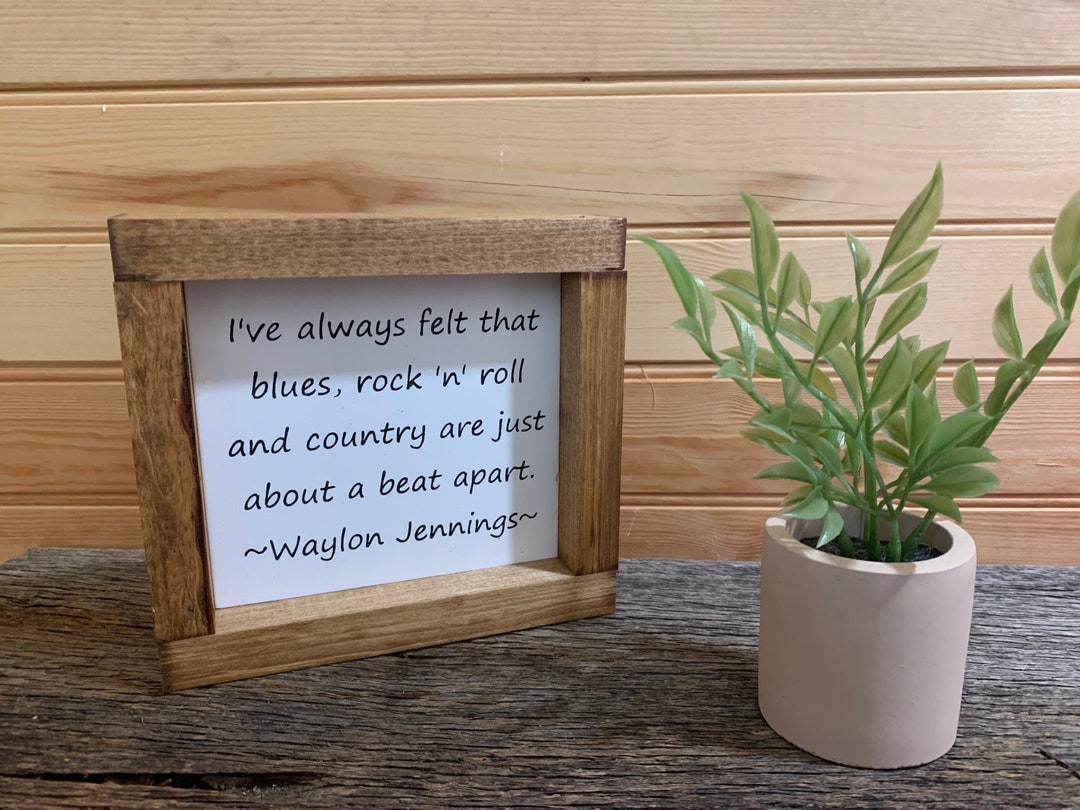 I've always felt that
blues, rock 'n' roll
and country are just
about a beat apart.
~Waylon Jennings~